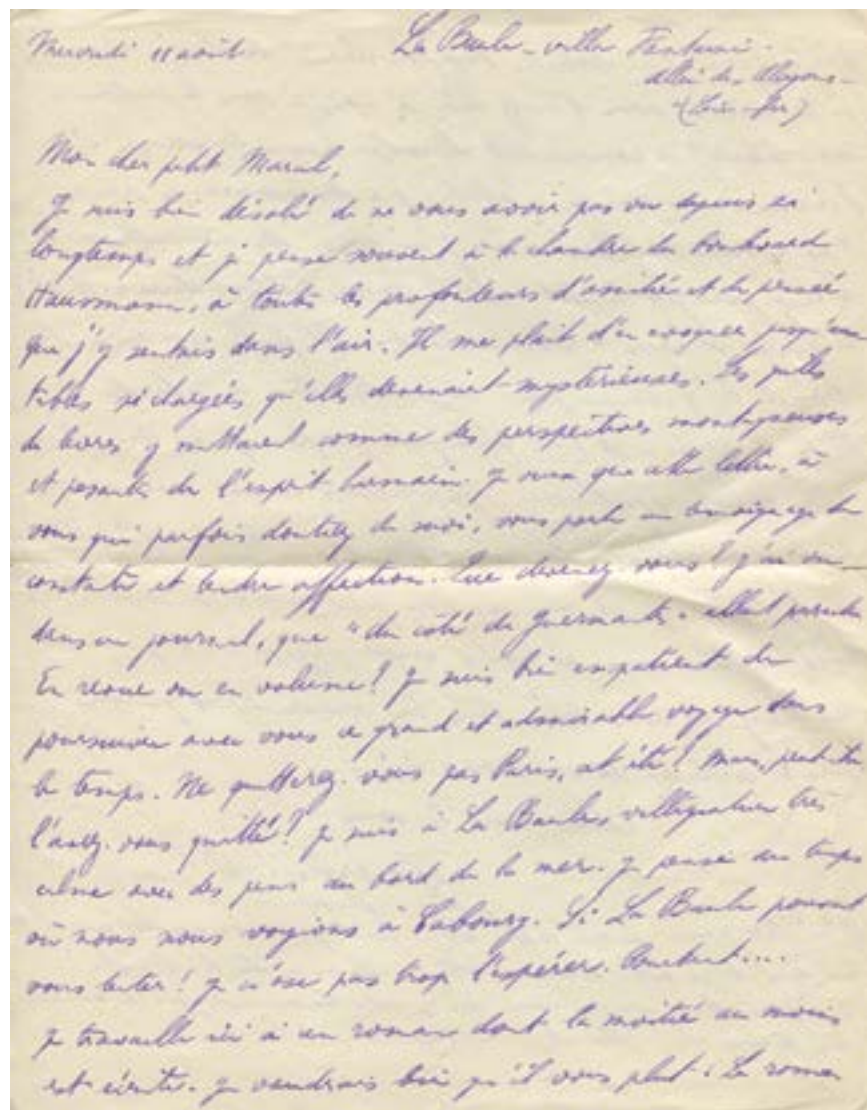 Mercredi 11 août La Baule - villa
allée des
(Loire-Inf)
Mon cher petit Marcel,
Je suis bien désolé de ne vous avoir pas vu depuis si
longtemps et je pense souvent à la chambre du boulevard
Haussmann, à toutes les profondeurs d'amitié et de pensée
que j'y sentais dans l'air. Il me plaît d'en évoquer jusqu'aux
tables si chargées qu'elles devenaient mystérieuses. Les piles
de livres y mettaient comme des perspectives montagneuses
et pesantes de l'esprit humain. Je veux que cette lettre, à
vous qui parfois doutiez de moi, vous porte un témoignage de
constante et tendre affection. Que devenez-vous? J'ai vu
dans un journal, que "du côté de Guermantes" allait paraître
En revue ou en volume? Je suis bien impatient de
poursuivre avec vous ce grand et admirable voyage dans
le temps. Ne quitterez-vous pas Paris, cet été? Mais, peut-être
l'avez-vous quitté? Je suis à La Baule villégiature très
calme avec des pins au bord de la mer. Je pense au temps
où nous nous voyions à Cabourg. Si La Baule pouvait
vous tenter! Je n'ose pas trop l'espérer. Pourtant....
Je travaille ici à un roman dont la moitié au moins
est écrite. Je voudrais bien qu'il vous plût. Le roman